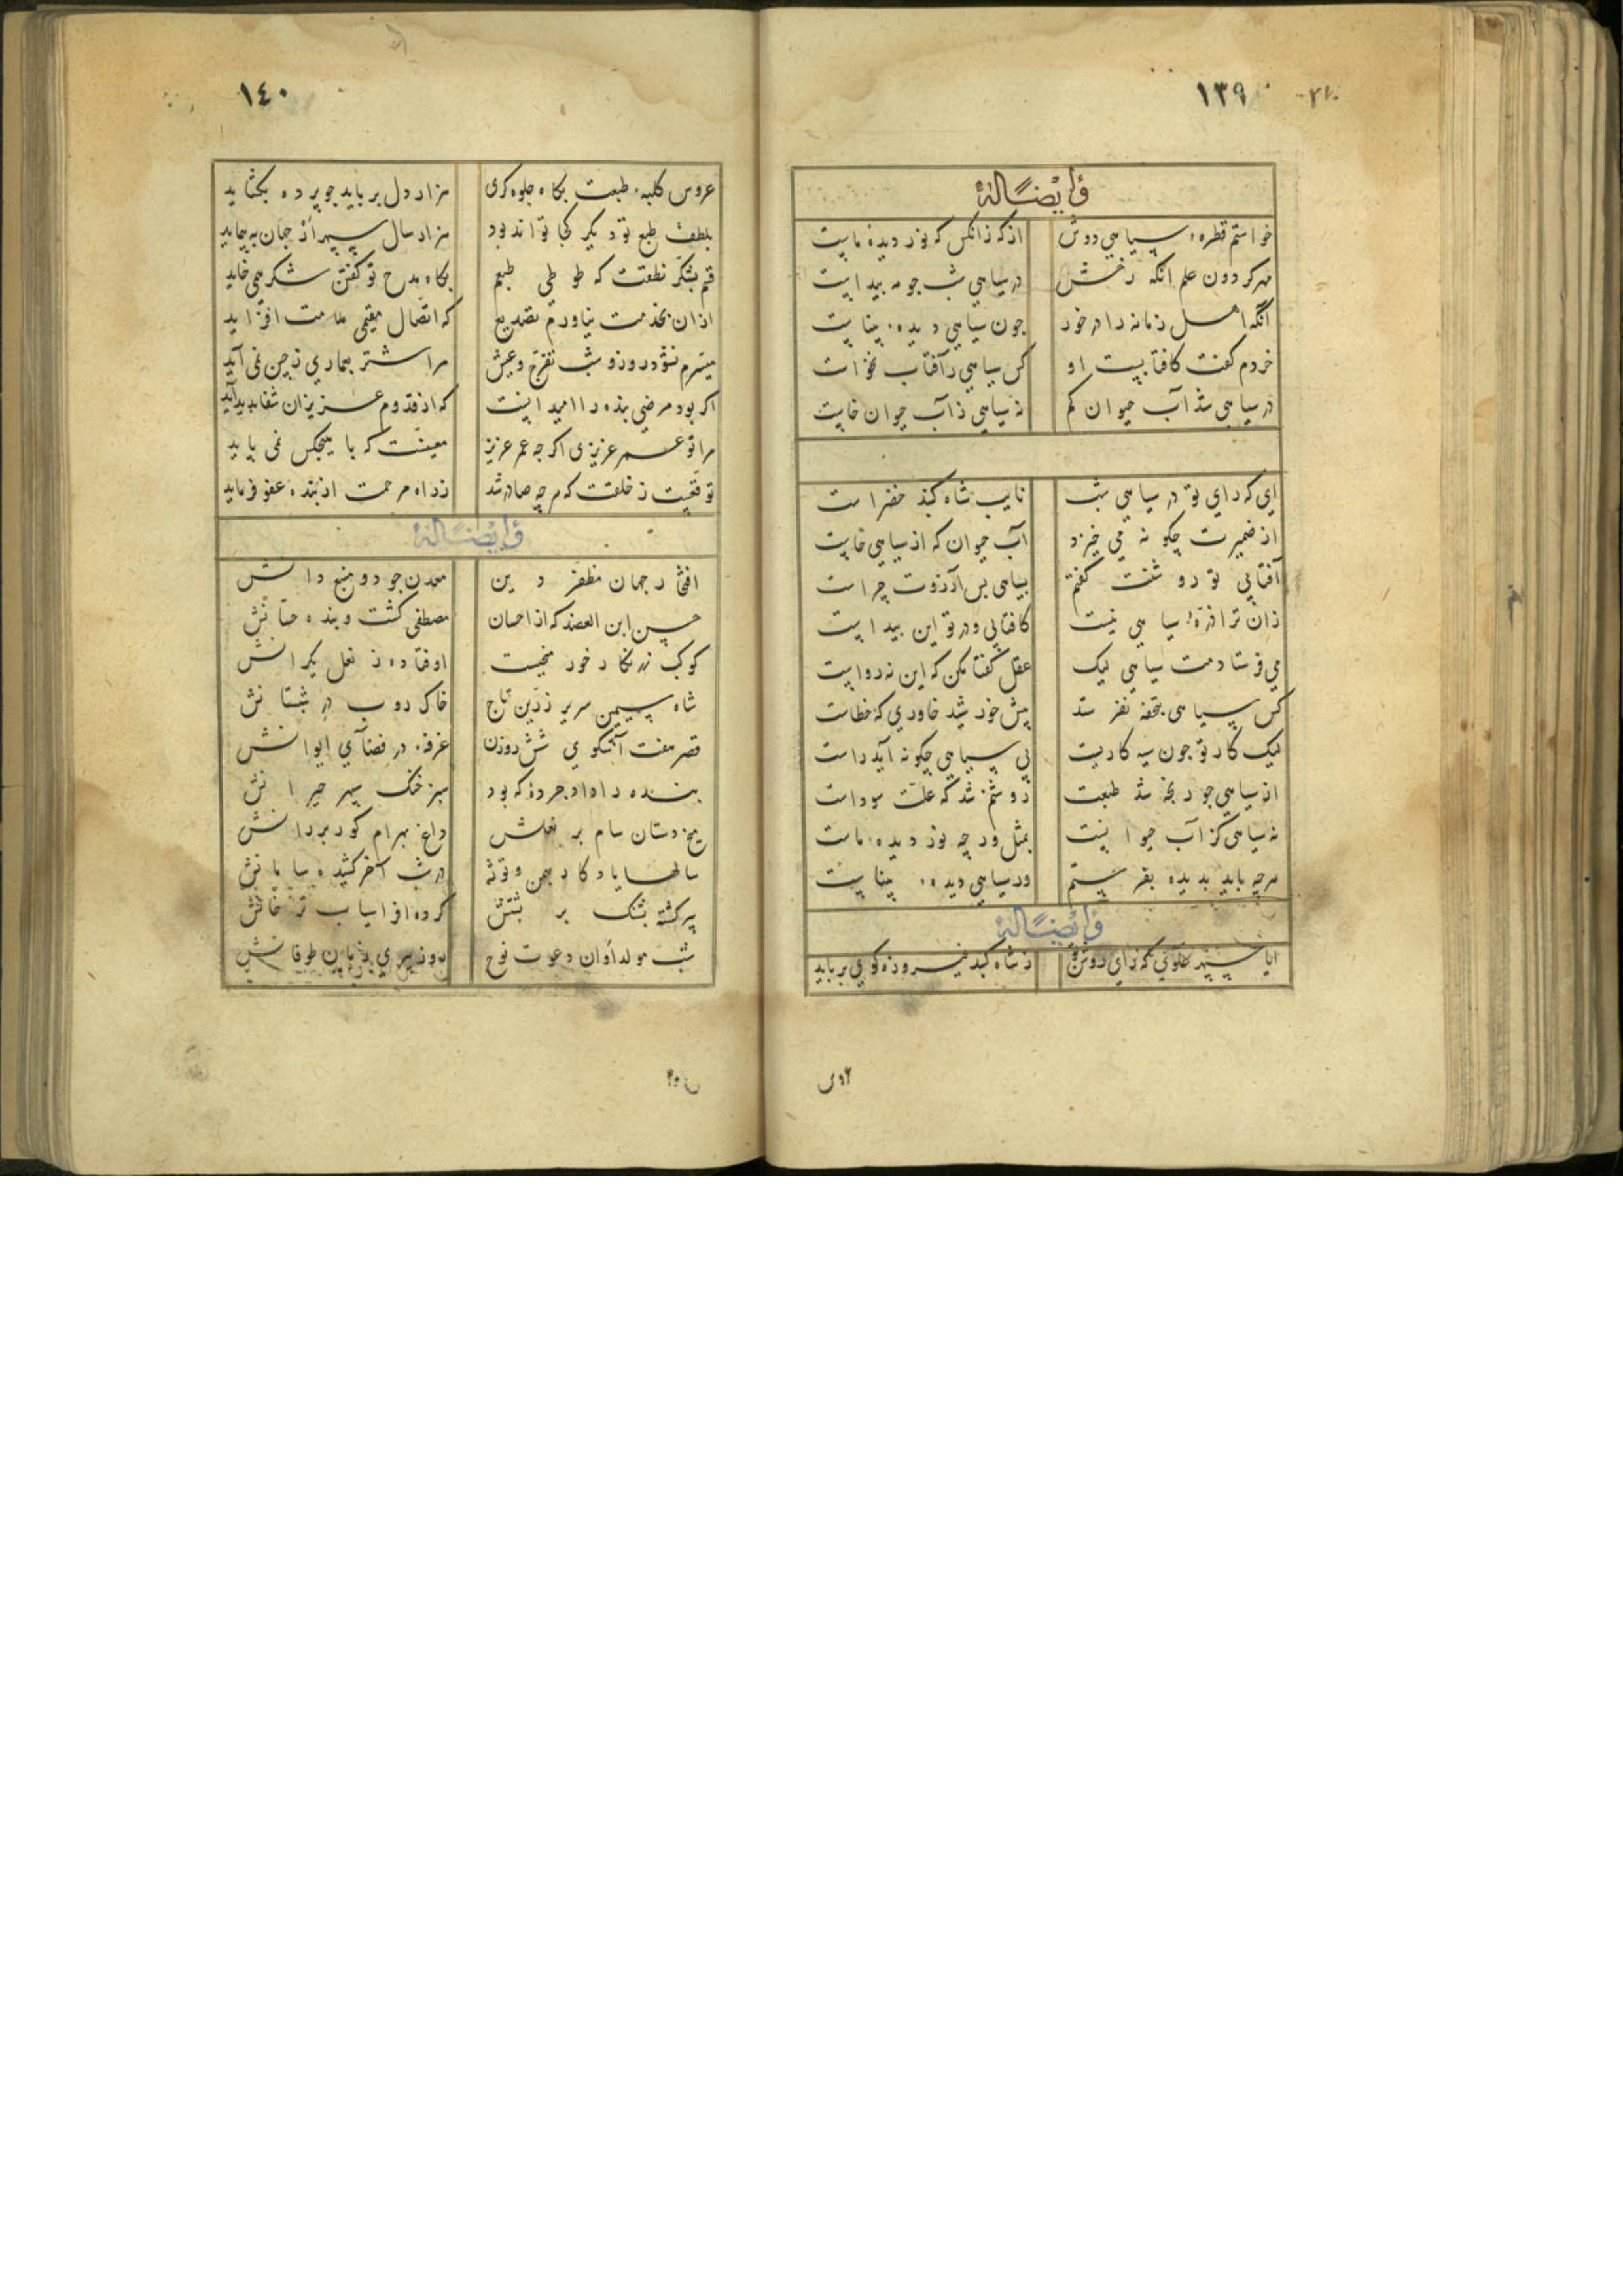 ١٣٩
وایضاً له
خواستم قطره سیاهی دوش از که زانکس که نور دیده ماست
مهر کردون علم انکه رخش در سیاهی شب جو مه بیداست
آنکه اهل زمانه را در خود جون سیاهی دیده بیناست
خردم کفت کافتابیست او کس سیاهی ز آفتاب نخواست
در سیاهی شد آب حیوان کم نه سیاهی ز آب حیوان خاست
ای که رای تو در سیاهی شب نایب شاه کنبد خضراست
از ضمیرت چکونه می خیزد آب حیوان که از سیاهی خاست
آفتابی تو روشنت کفتم بسیاهی بس آرزوت چراست
زان ترا ذره سیاهی نیست کافتابی ودر تو این بیداست
می فرستادمت سیاهی لیک عقل کفتا مکن که این نه رواست
کس سیاهی بتحفه نفرستد پیش خورشید خاوری که خطاست
لیک کار تو جون سیه کاریست بی سیاهی چکونه آید راست
از سیاهی جو رنجه شد طبعت روشنم شد که علت سوداست
نه سیاهی کز آب حیوانیت بمثل ورچه نور دیده ماست
هرچه باید بدیده بفرستم ور سیاهی دیده بیناست
وایضاً له
ایا سپهر علوی که رای روشن تو ز شاه کنبد فیروزه کوی برباید
١٤٠
عروس کلبه طبعت بکاه جلوه کری هزار دل برباید جو پرده بکشاید
بلطف طبع تو دیکر کجا تواند بود هزار سال سپهر از جهان بپیماید
قسم بشکر نطقت که طوطی طبعم بکاه مدح تو کفتن شکر همی خاید
از ان بخدمت نیاوردم تصدیع که اتصال مقیمی ملامت افزاید
میسرم نشود روز و شب تفرج و عیش مرا شتر بعماری ز چین نمی آید
اکر بود مرضی بنده را امید اینست که از قدوم عزیزان شفا بدید آید
مرا تو عمر عزیزی اکرچه عمر عزیز معینست که با هیچکس نمی پاید
توقعیست ز خلقت که هرچه صادر شد ز راه مرحمت از بنده عفو فرماید
وایضاً له
افتخار جهان مظفر دین معدن جود و منبع دانش
حسین ابن العضد که از احسان مصطفی کشت و بنده حسانش
کوکب زرنکار خور میخیست اوفتاده ز نعل یکرانش
شاه سیمین سریر زرین تاج خاک روب در شبستانش
قصر هفت آشکوی شش روزن غرفه در فضآی ایوانش
بنده را داد جرده که بود سبز خنک سپهر حیرانش
میخ دستان سام بر نعلش داغ بهرام کور بر رانش
سالها یادکار بهمن و توشه در شب آخر کشیده سامانش
پیر کشته بشنک بر بشتش کرده افراسیاب ترخانش
شب مولد اوان دعوت نوح روز پیری بذ پایان طوفانش